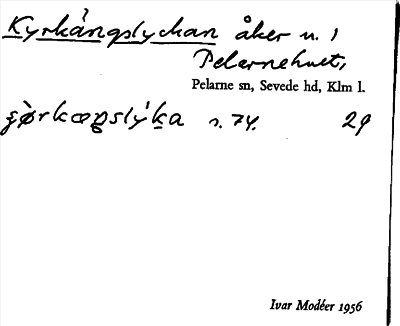 Kyrkängslyckan åker u. 1
Pelarnehult,
Pelarne sn, Sevede hd, Klm l.
s. 74. 29
Ivar Modéer 1956